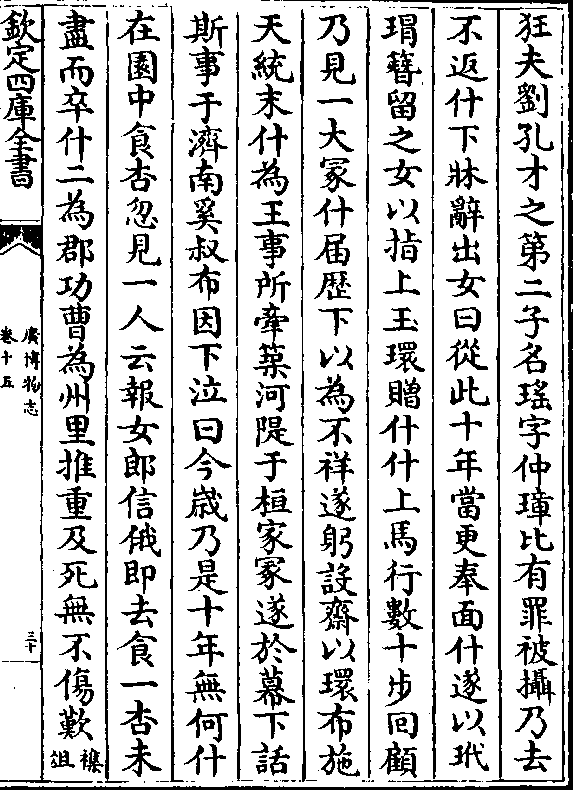 狂夫劉孔才之第二子名瑤字仲璋比有罪被攝乃去
不返什下牀辭出女曰從此十年當更奉面什遂以玳
瑁簪留之女以指上玉環贈什什上馬行數十步回顧
乃見一大冢什届歴下以為不祥遂躬設齋以環布施
天統末什為王事所牽築河隄于桓家冢遂於幕下話
斯事于濟南奚叔布因下泣曰今歳乃是十年無何什
在園中食杏忽見一人云報女郎信俄即去食一杏未
盡而卒什二為郡功曹為州里推重及死無不傷歎襍俎
欽定四庫全書
廣博物志
卷十五
三十